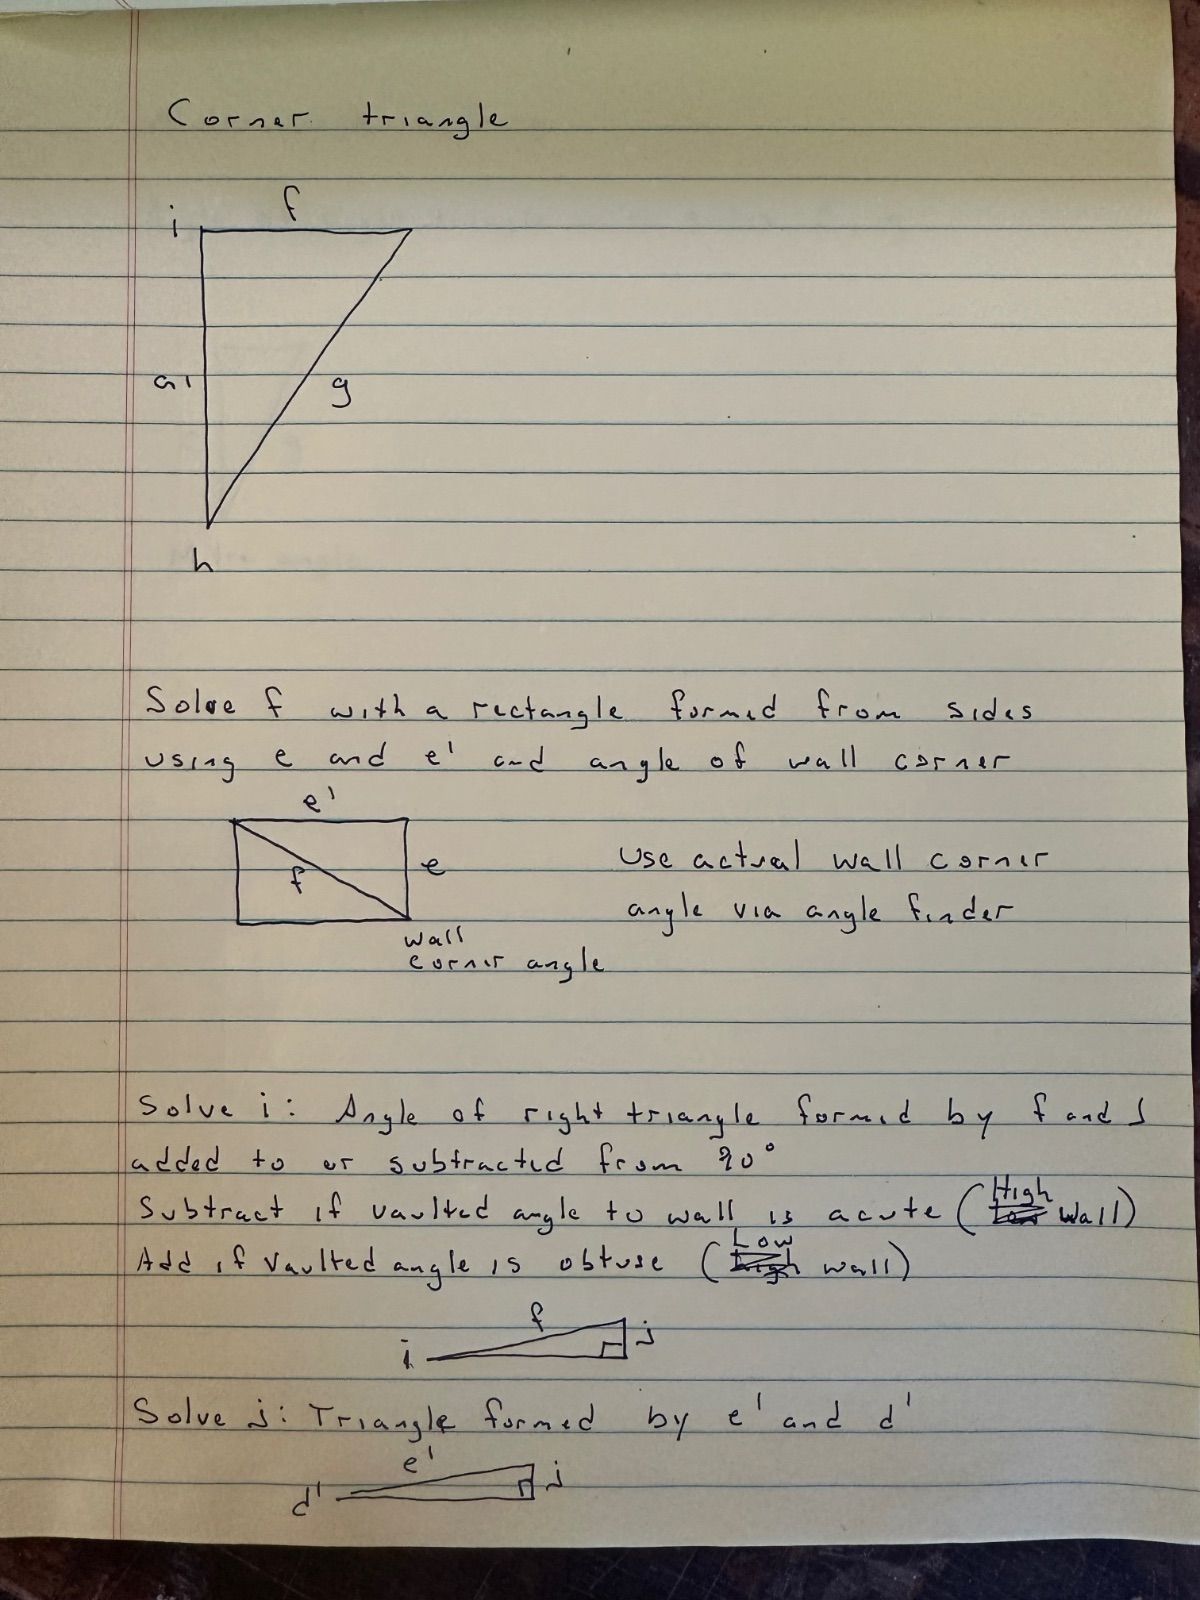 Corner triangle
f
i
a'
g
h
Solve f with a rectangle formed from sides
using e and e' and angle of wall corner
e'
f
e
Use actual wall corner
angle via angle finder
wall
corner angle
Solve i: Angle of right triangle formed by f and j
added to or subtracted from 90°
High
Subtract if vaulted angle to wall is acute ( wall)
Low
Add if vaulted angle is obtuse ( wall)
f
i
j
Solve j: Triangle formed by e' and d'
e'
d'
j